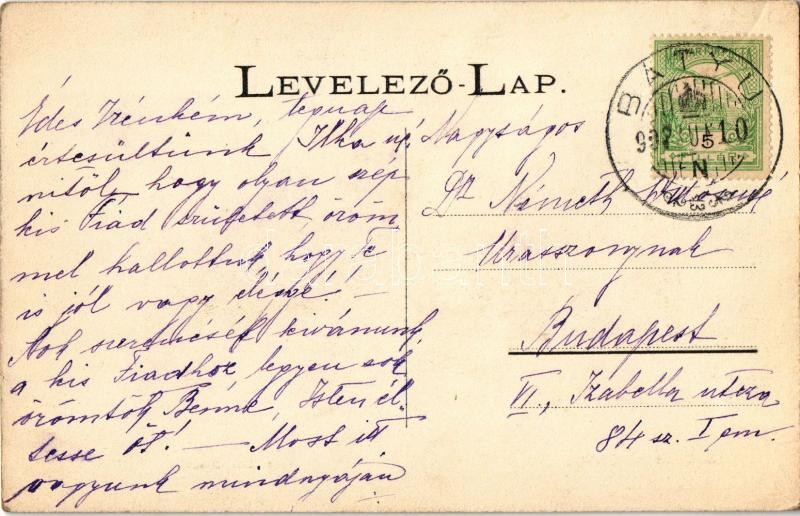 LEVELEZŐ-LAP.
BÁTYU
5
Édes Irénkém, tegnap
értesültünk Ilka né
nitől, hogy olyan szép
kis Fiad született, öröm
mel hallottuk, hogy Te
is jól vagy
Sok szerencsét kivánunk
a kis Fiadhoz legyen sok
örömtök Benne, Isten él-
tesse őt! — Most itt
vagyunk mindnyáján
Nagyságos
Dr. Németh
Urasszonynak
Budapest
VI., Izabella utcza
84 sz. I em.